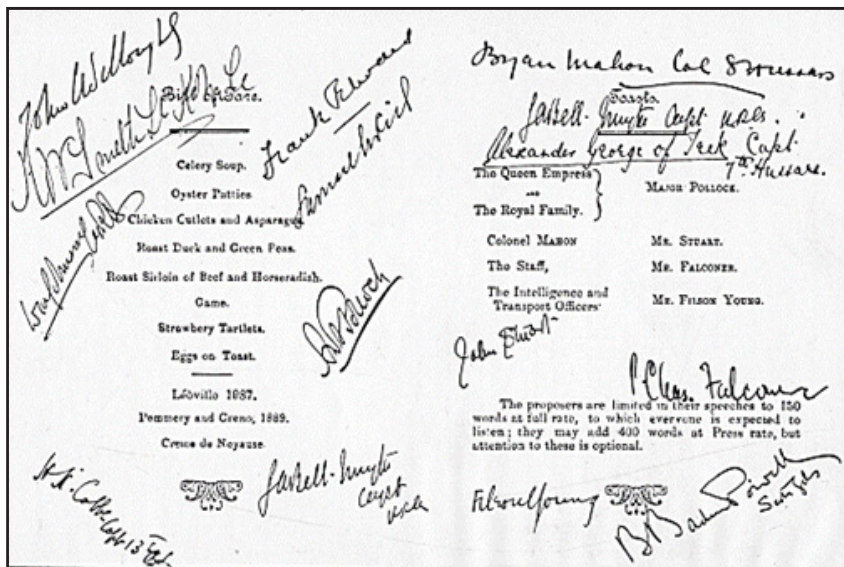 John Willoughby
Bill of Fare.
Frank Rhodes
Samuel Weil
Celery Soup.
Oyster Patties.
Chicken Cutlets and Asparagus.
Roast Duck and Green Peas.
Roast Sirloin of Beef and Horseradish.
Game.
Strawberry Tartlets.
Eggs on Toast.
Capt 13
Capt
Bryan Mahon Col 8 Hussars
Toasts.
Smyth Capt
Alexander George of Teck Capt.
7th Hussars.
The Queen Empress
AND
The Royal Family.
MAJOR POLLOCK.
Colonel MAHON MR. STUART.
The Staff, MR. FALCONER.
The Intelligence and
Transport Officers MR. FILSON YOUNG.
John Stuart
Chas. Falconer
The proposers are limited in their speeches to 150
words at full rate, to which everyone is expected to
listen; they may add 400 words at Press rate, but
attention to these is optional.
Filson Young
B Baden Powell
Pommery and Greno, 1889.
Creme de Noyause.